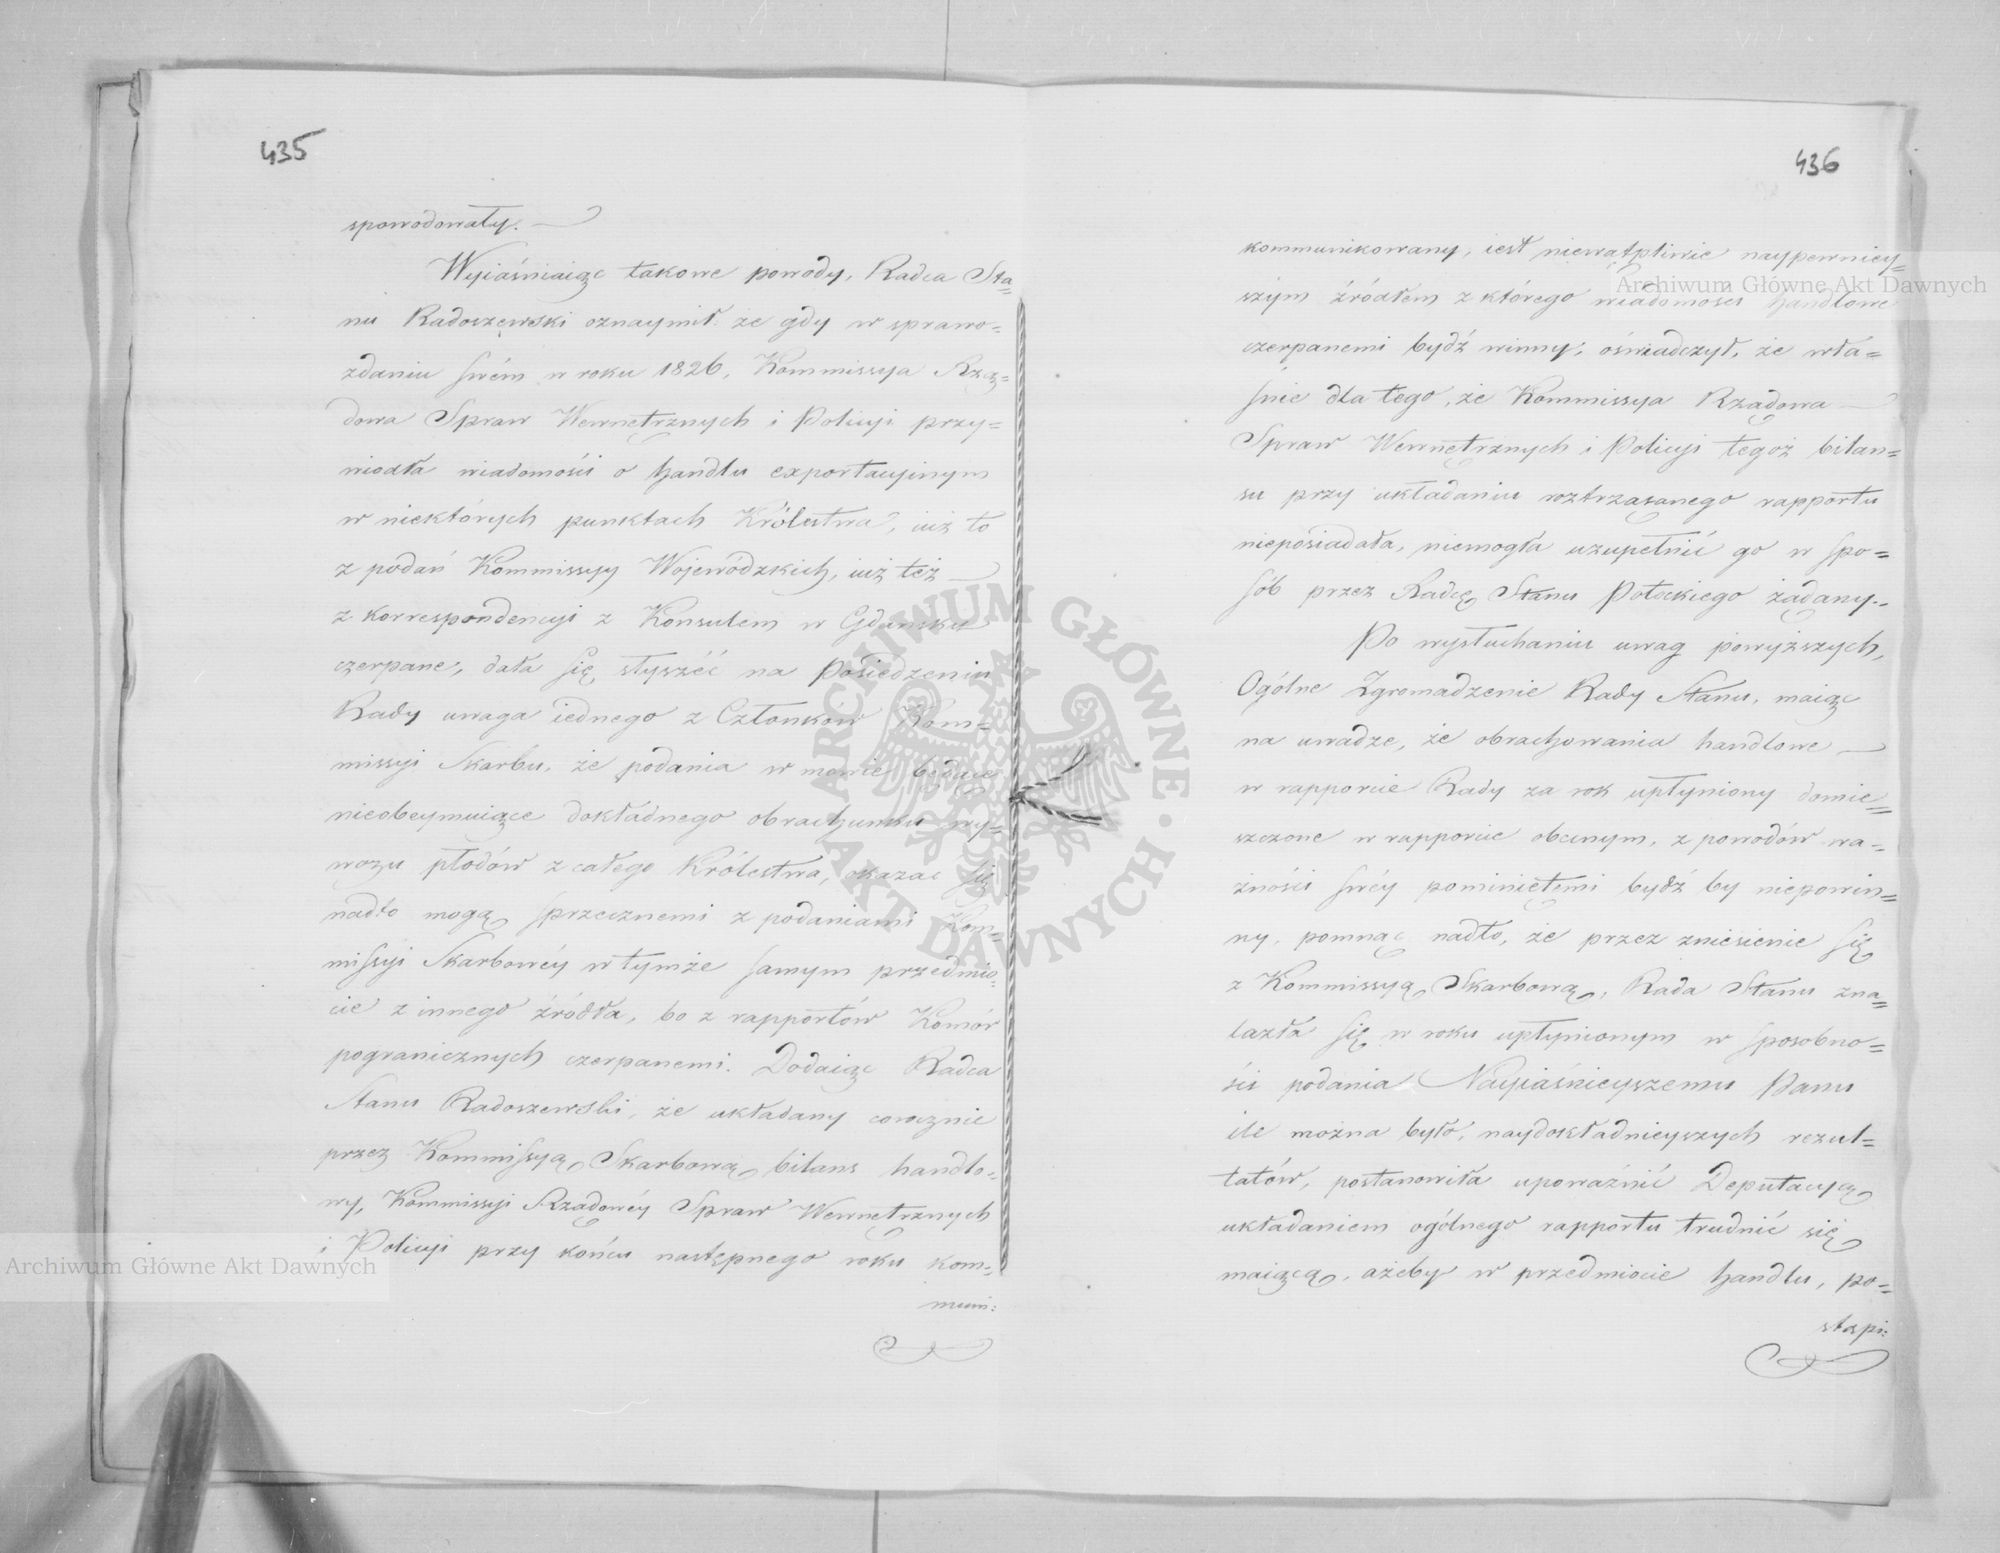 435
spowodowały. —
Wyiaśniaiąc takowe powody, Radca Sta=
nu Radoszewski oznaymił że gdy w sprawo=
zdaniu swém w roku 1826, Kommissya Rzą=
dowa Spraw Wewnętrznych i Policyi przy=
wiodła wiadomości o handlu exportacyinym
w niektórych punktach Królestwa, iuż to
z podań Kommissyy Wojewódzkich, iuż też —
z korrespondencyi z Konsulem w Gdańsku
czerpane, dała się słyszéć na Posiedzeniu
Rady uwaga iednego z Członków Kom=
missyi Skarbu, że podania w mowie będące
nieobeymuiące dokładnego obrachunku wy=
wozu płodów z całego Królestwa, okazać się
nadto mogą sprzecznemi z podaniami Kom=
missyi Skarbowéy w tymże samym przedmio=
cie z innego źródła, bo z rapportów Komór
pogranicznych czerpanemi. Dodaiąc Radca
Stanu Radoszewski, że układany corocznie
przez Kommissyą Skarbową bilans handlo=
wy, Kommissyi Rządowéy Spraw Wewnętrznych
i Policyi przy końcu następnego roku kom=
muni:
436
kommunikowany, iest niewątpliwie naypewniey=
szym źródłem z którego wiadomości handlowe
czerpanemi bydź winny, oświadczył, że wła=
śnie dla tego, że Kommissya Rządowa —
Spraw Wewnętrznych i Policyi tegoż bilan=
su przy układaniu roztrząsanego rapportu
nieposiadała, niemogła uzupełnić go w spo=
sób przez Radcę Stanu Potockiego żądany.
Po wysłuchaniu uwag powyższych,
Ogólne Zgromadzenie Rady Stanu, maiąc
na uwadze, że obrachowania handlowe —
w rapporcie Rady za rok upłyniony domie=
szczone w rapporcie obecnym, z powodów wa=
żności swéy pominiętemi bydź by niepowin=
ny, pomnąc nadto, że przez zniesienie się
z Kommissyą Skarbową, Rada Stanu zna=
lazła się w roku upłynionym w sposobno=
ści podania Nayiaśnieyszemu Panu
ile można było, naydokładnieyszych rezul=
tatów, postanowiła upoważnić Deputacyą
układaniem ogólnego rapportu trudnić się
maiącą, ażeby w przedmiocie handlu, po=
stąpi:
Archiwum Główne Akt Dawnych
Archiwum Główne Akt Dawnych
ARCHIWUM GŁÓWNE AKT DAWNYCH